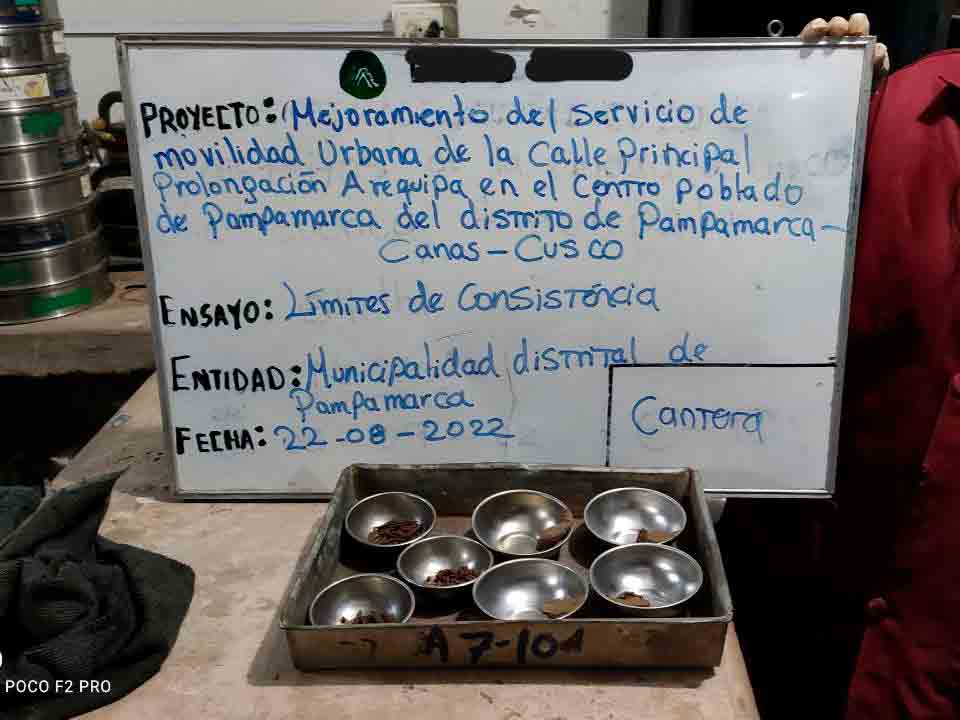 PROYECTO: Mejoramiento del servicio de
movilidad Urbana de la Calle Principal
Prolongación Arequipa en el Centro poblado
de Pampamarca del distrito de Pampamarca-
Canas-Cusco
ENSAYO: Límites de Consistencia
ENTIDAD: Municipalidad distrital de
Pampamarca
FECHA: 22-08-2022
Cantera
A7-10
POCO F2 PRO